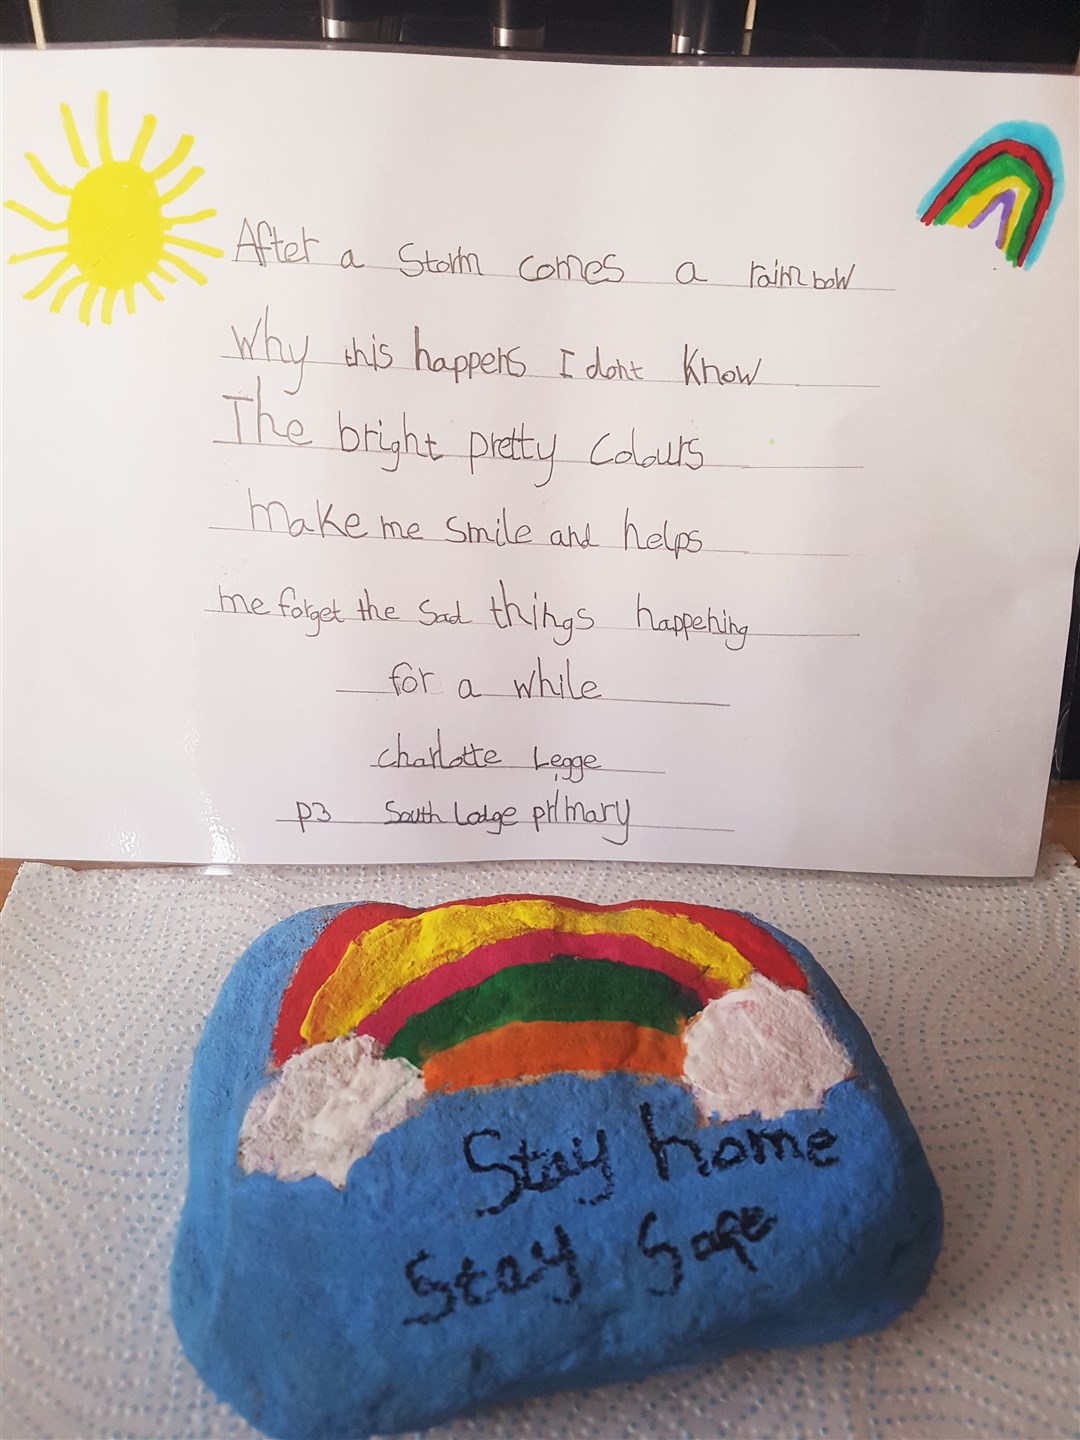 After a Storm comes a rainbow
Why this happens I dont know
The bright pretty Colours
make me smile and helps
me forget the sad things happening
for a while
charlotte Legge
p3 South Lodge primary
Stay home
Stay Safe